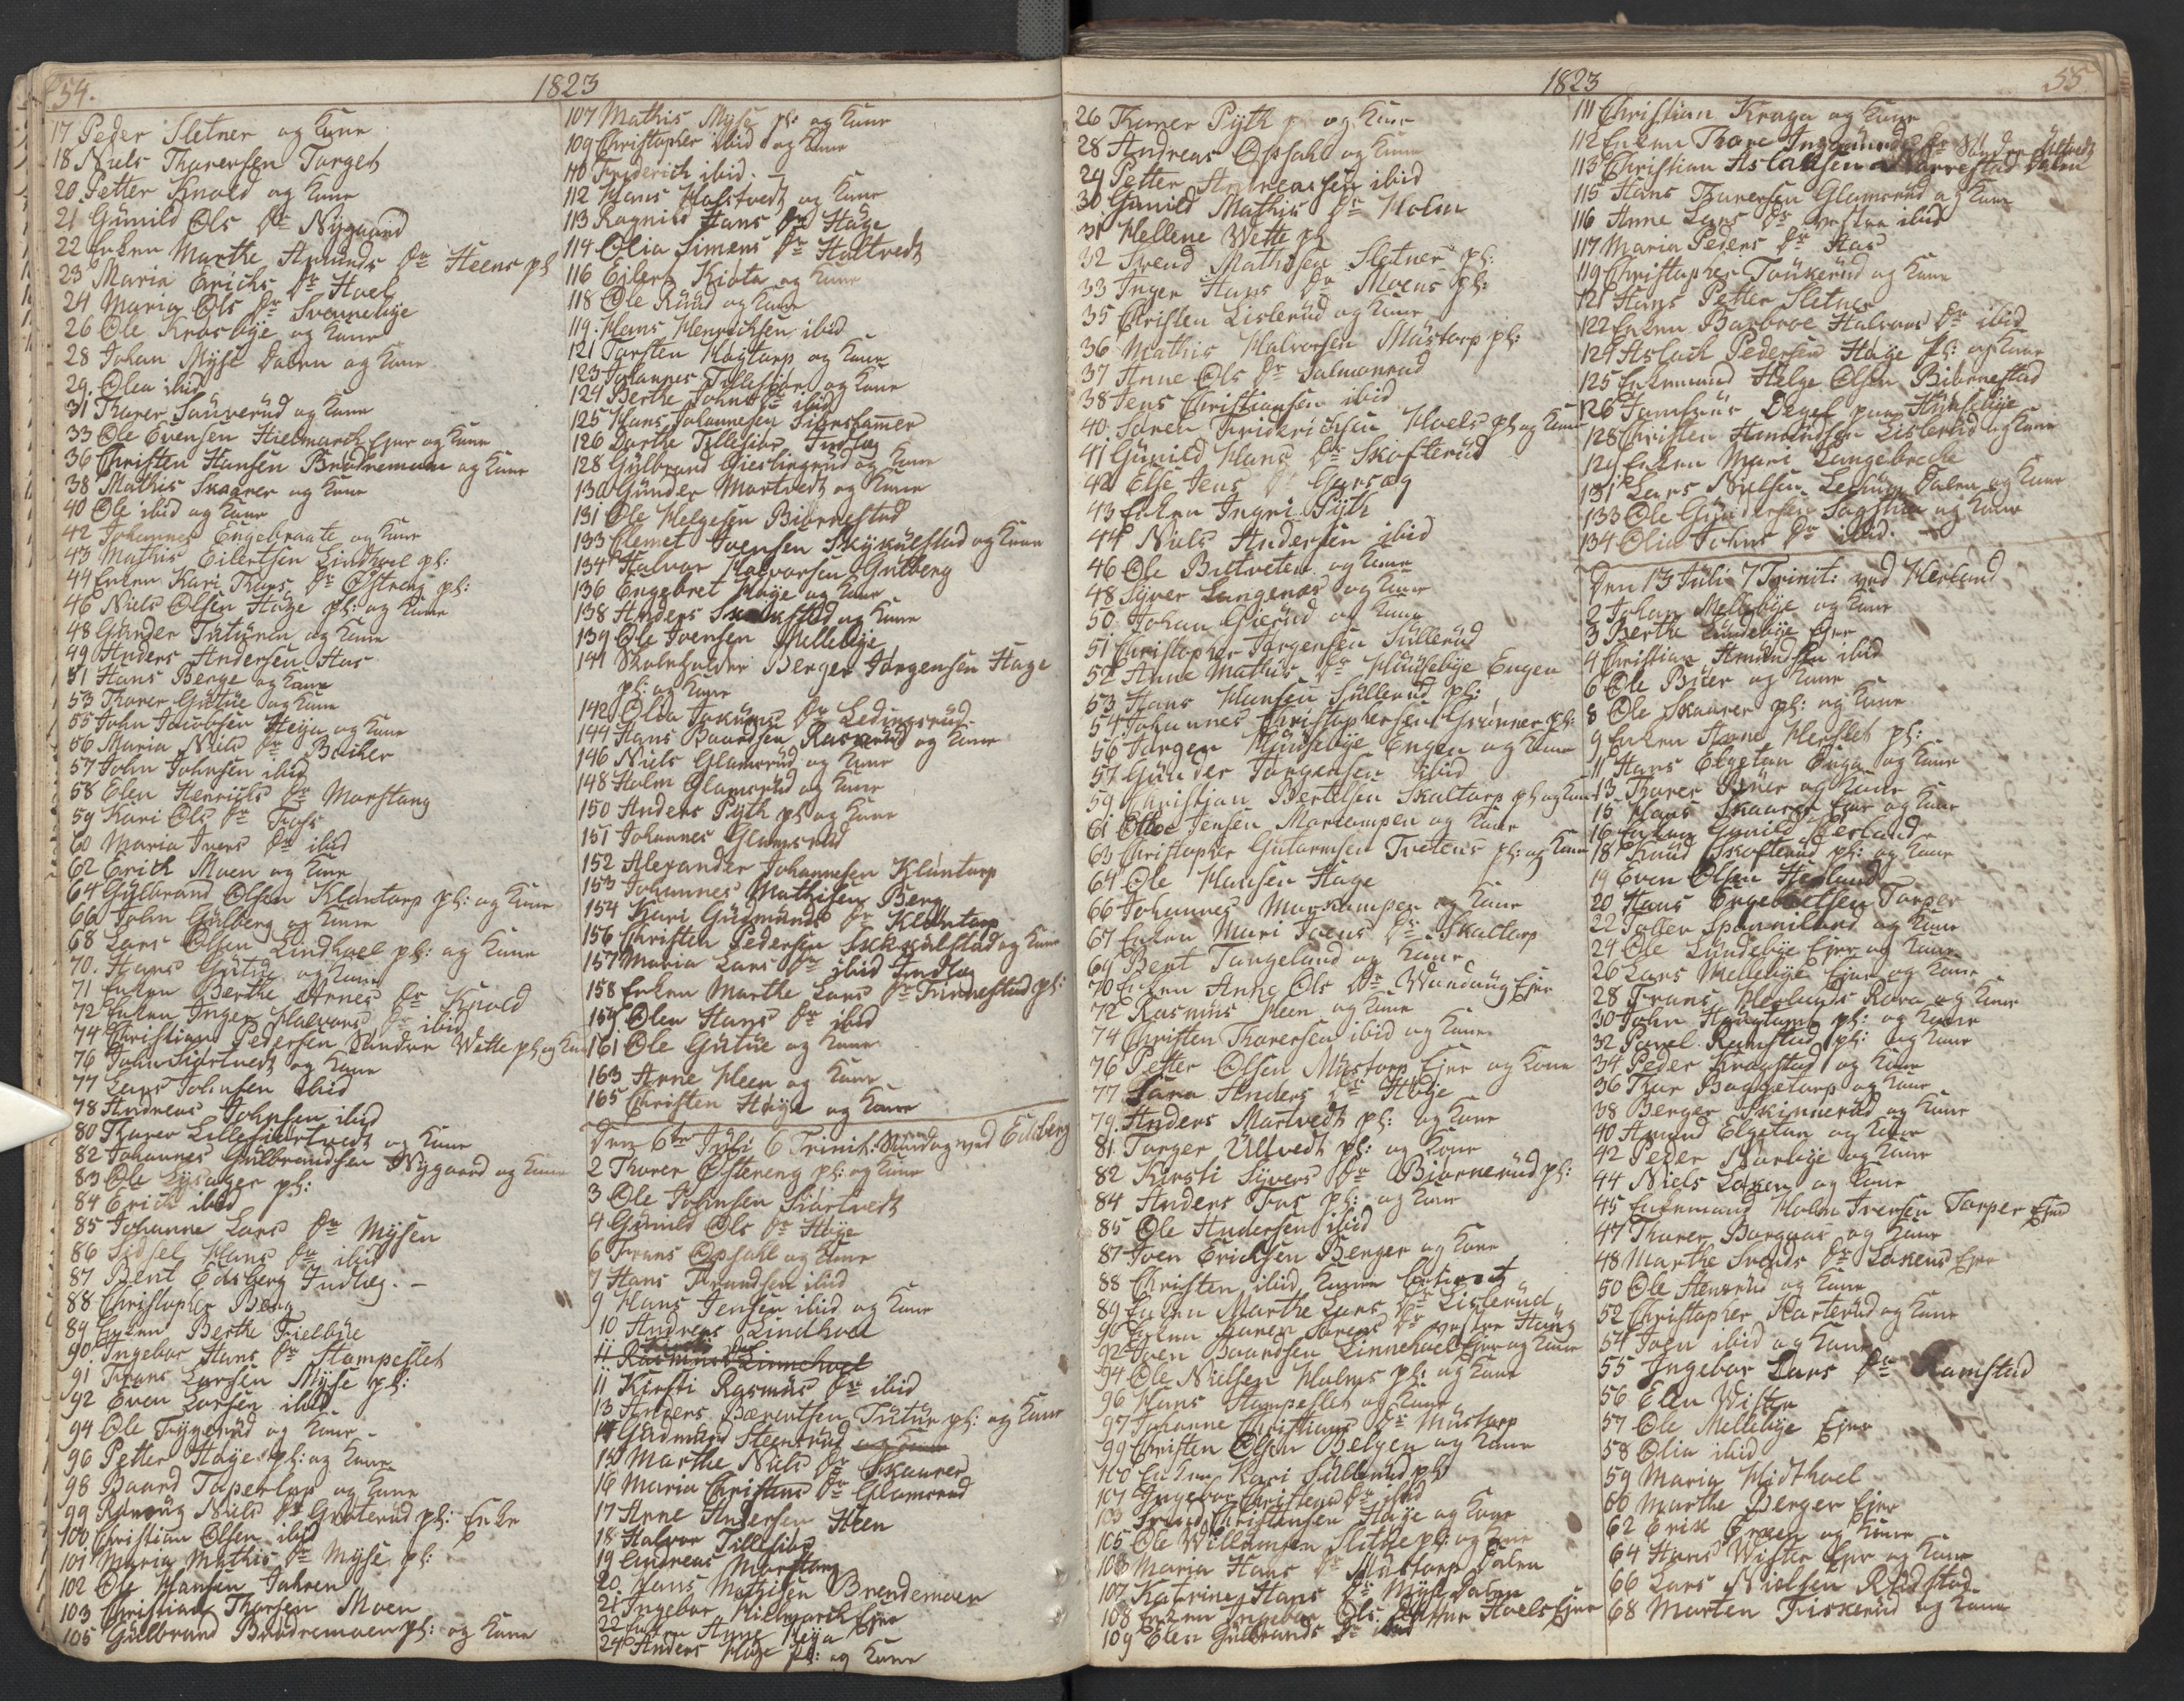 54.
1823
17 Peder Sletner og Kone
18 Niels Thorersen Torget
20 Petter Knold og Kone
21 Gunild Ols Dr Nygaard
22 Enken Marthe Amunds Dr Heens pl
23 Maria Erichs Dr Hoel
24 Maria Ols Dr Svennebye
26 Ole Krosbye og Kone
28 Johan Myse Dalen og Kone
29. Olea ibid
31 Thorer og Kone
33 Ole Evensen Hielmarck Ejer og Kone
36 Christen Hansen Brødremoen og Kone
38 Mathis Skaarer og Kone
40 Ole ibid og Kone
42 Johannes Engebraate og Kone
43 Mathis Eilertsen Lindhoel pl:
44 Enken Kari Thors Dr Østreng pl:
46 Niels Olsen Høye pl: og Kone
48 Gunder Tutturen og Kone
49 Anders Andersen Aas
51 Hans Berge og Kone
53 Thorer Gutue og Kone
55 John Jacobsen Heya og Kone
56 Maria Niels Dr
57 John Johnsen ibid
58 Elen Henrichs Dr Morstang
59 Kari Ols Dr Foss
60 Maria Ivers Dr ibid
62 Erich Moen og Kone
64 Gulbrand Olsen Klontorp pl: og Kone
66 John Gulberg og Kone
68 Lars Olsen Lindhoel pl: og Kone
70. Hans Gutue og Kone
71 Enken Berthe Arnes Dr Knold
72 Enken Inger Halvors Dr ibid
74 Christian Pedersen Søndre Wette pl og Kone
76 John Hiortvedt og Kone
77 Lars Johnsen ibid
78 Andreas Johnsen ibid
80 Thorer og Kone
82 Johannes Gulbrandsen Nygaard og Kone
83 Ole Lysager pl:
84 Erich ibid
85 Johanne Lars Dr Mysen
86 Sidsel Hans Dr ibid
87 Bent Edsberg Indlæg. -
88 Christopher Berg
89 Enken Berthe
90. Ingebor Hans Dr Stompeslet
91 Frans Larsen Myse pl:
92 Even Larsen ibid
94 Ole Trygerud og Kone -
96 Petter Høyes pl: og Kone
98 Baard Tapertop og Kone
99 Niels Dr Groterud pl: Enke
100 Christian Olsen ibid
101 Maria Mathis Dr Myse pl:
102 Ole Hansen Jahren
103 Christian Thorsen Moen
105 Gulbrand Brødremoen pl: og Kone
107 Mathis Myse pl: og Kone
109 Christopher ibid og Kone
110 Friderich ibid. -
112 Hans og Kone
113 Ragnild Hans Dr Høye
114 Olia Simens Dr Haltvedt
116 Eilert Kiota og Kone
118 Ole Ruud og Kone
119. Hans Henrichsen ibid
121 Torsten Høytorp og Kone
123 Johannes Tillesior og Kone
124 Berthe Johns Dr ibid
125 Hans Johannesen
126 Dorthe Tillesior Indlæg
128 Gulbrand og Kone
130 Gunder Mortvedt og Kone
131 Ole Helgesen Biørnestad
133 Clemet Joensen Skykulstad og Kone
134 Halvor Halvorsen Gulberg
136 Engebret Høye og Kone
138 Anders og Kone
139 Ole Joensen Mellebye
141 Skoleholder Berger Jørgensen Hage
pl: og Kone
142 Dr Ledingsrud
144 Hans Baardsen og Kone
146 Niels Glamsrud og Kone
148 Holm Glamsrud og Kone
150 Anders Pyth pl og Kone
151 Johannes Glamsrud
152 Alexander Johannesen Klontorp
153 Johannes Mathisen Berg
154 Kari Gudmunds Dr Klontorp
156 Christen Pedersen og Kone
157 Maria Lars Dr ibid Indlæg
158 Enken Marthe Lars Dr pl:
159. Olea Hans Dr ibid
161 Ole Gutue og Kone
163 Arne Heen og Kone
165 Christen Høye og Kone
Den 6te Juli 6 Trinit: Søndag ved Eidsberg
2 Thorer Østereng pl: og Kone
3 Ole Johnsen Hiortvedt
4 Gunild Ols Dr Høye
6 Frans Opsahl og Kone
7 Hans ibid
9 Hans Jensen ibid og Kone
10 Andreas Lindhoel
11 Rasmus Linnehoel
11 Kirsti Rasmus Dr ibid
13 Anders Berentsen Tutur pl: og Kone
14 Gudmund Steensrud og Kone
15 Marthe Niels Dr Skaarer
16 Maria Christens Dr Glamsrud
17 Anne Andersen Heen
18 Halvor Tillesior
19 Andreas Morstang
20 Hans Mathisen Brendemoen
21 Ingebor Hielmarck Ejer
22 Enken Anne Heya
24 Anders Høye pl: og Kone
1823
55
26 Thorer Pyth pl og Kone
28 Andreas Opsahl og Kone
29 Petter Andreassen ibid
30 Gunild Mathis Dr Holm
31 Hellene Wette pl
32 Svend Mathisen Sletner pl:
33 Inger Hans Dr Moens pl:
35 Christen Lislerud og Kone
36 Mathis Halvorsen Mustorp pl:
37 Anne Ols Dr Salmonrud
38 Jens Christiansen ibid
40. Søren Friderichsen Hoels pl og Kone
41 Gunild Hans Dr Skofterud
42 Else Jens Dr
43 Enken Ingri Pyth
44 Niels Andersen ibid
46 Ole og Kone
48 Syver Langenæs og Kone
50 Johan og Kone
51 Christopher Jørgensen Sullerud
52 Anne Mathis Dr Huusebye Engen
53 Hans Hansen Sullerud pl:
54 Johannes Christophersen pl:
56 Jørgen Huusebye Engen og Kone
57 Gunder Jørgensen ibid
59 Christian Bertelsen Skaltorp pl og Kone
61 Jensen og Kone
63 Christopher Gutormsen Tvetens pl: og Kone
64 Ole Hansen Hage
66 Johannes og Kone
67 Enken Mari Joens Dr Skaltorp
69 Bent Tangeland og Kone
70 Enken Anne Ols Dr Ejer
72 Rasmus Heen og Kone
74 Christen Thoresen ibid og Kone
76 Petter Olsen Mustorp Ejer og Kone
77 Anders Dr Høye
79. Anders Mortvedt pl: og Kone
81 Torger Ultvedt pl: og Kone
82 Kirsti Syvers Dr Biørnerud pl:
84 Anders Foss pl: og Kone
85 Ole Andersen ibid
87 Joen Erichsen Berger og Kone
88 Christen ibid Konen
89 Enken Marthe Lars Dr Lislerud
90 Enken Maren Sørens Dr vestre Haug
92 Joen Baardsen Linnehoel Ejer og Kone
94 Ole Nielsen Holms pl: og Kone
96 Hans Stompeslet og Kone
97 Johanne Christians Dr Mustorp
99 Christen Olsen Belgen og Kone
100 Enken Kari Sullerud pl
101 Ingebor Christens Dr ibid
103 Christensen Høye og Kone
105 Ole Willumsen Slitue pl: og Kone
106 Maria Hans Dr Mustorp Dalen
107 Katrine Hans Dr Myse Dalen
108 Enken Ingebor Ols Hoels Ejer
109 Elen Gulbrands Dr ibid
111 Christian Kraga og Kone
112 Enken Thore Dr Søndre Ultvedt
113 Christian Aslaksen Dalen
115 Hans Thoresen Glamsrud og Kone
116 Anne Lars Dr vestre ibid
117 Maria Peders Dr Aas
119 Christopher og Kone
121 Hans Petter Sletner
122 Enken Barbroe Halvors Dr ibid
124 Aslack Pedersen Høye pl: og Kone
125 Enkemand Helge Olsen Biørnestad
126 Jomfrue Degef paa Huusebye
128 Christen Amundsen Lislerud og Kone
129 Enken Mari Langebrecke
131 Lars Nielsen Dalen og Kone
133 Ole Gundersen Sagstuen og Kone
134 Olia Johns Dr ibid. -
Den 13 Juli 7 Trinit: ved Herland
2 Johan Mellebye og Kone
3 Berthe Lundebye Ejer
4 Christian Amundsen ibid
6 Ole Buer og Kone
8 Ole Skaarer pl: og Kone
9 Enken Anne Herslet pl:
11 Hans Elgetun Enga og Kone
13 Thorer Buer og Kone
15 Hans Skaarer Ejer og Kone
16 Enken Gunild Herland
18 Knud Skofterud pl: og Kone
19 Even Olsen Herland
20 Hans Engebretsen Torper
22 og Kone
24 Ole Lundebye Ejer og Kone
26 Lars Mellebye Ejer og Kone
28 Frans Herlands Røra og Kone
30 John pl: og Kone
32 Povel Ramstad pl: og Kone
34 Peder Kragstad og Kone
36 Thor Baggetorp og Kone
38 Berger Skinnerud og Kone
40 Amund Elgetun og Kone
42 Peder Narbye og Kone
44 Niels Løken og Kone
45 Enkemand Holm Iversen Torper Ejer
47 Thorer og Kone
48 Marthe Svends Dr Løkens Ejer
50 Ole og Kone
52 Christopher Karterud og Kone
54 Joen ibid og Kone
55 Ingebor Lars Dr Ramstad
56 Elen Wister
57 Ole Mellebye Ejer
58 Olia ibid
59 Maria Midthoel
60 Marthe Berger Ejer
62 Erik Grøen og Kone
64 Hans Wister Ejer og Kone
66 Lars Nielsen Rudstad
68 Morten Fiskerud og Kone